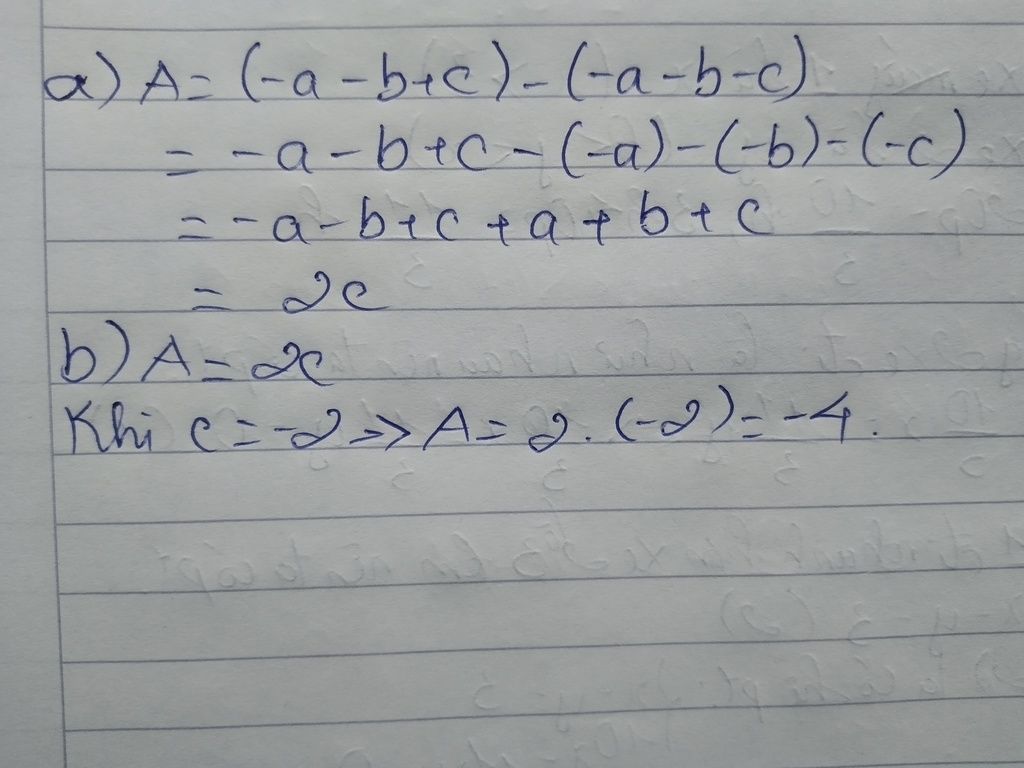 a) A = (-a - b+c) - (-a - b - c)
= -a - b + c - (-a) - (-b) - (-c)
= -a - b + c + a + b + c
= 2c
b) A = 2c
Khi c = -2 => A = 2. (-2) = -4.